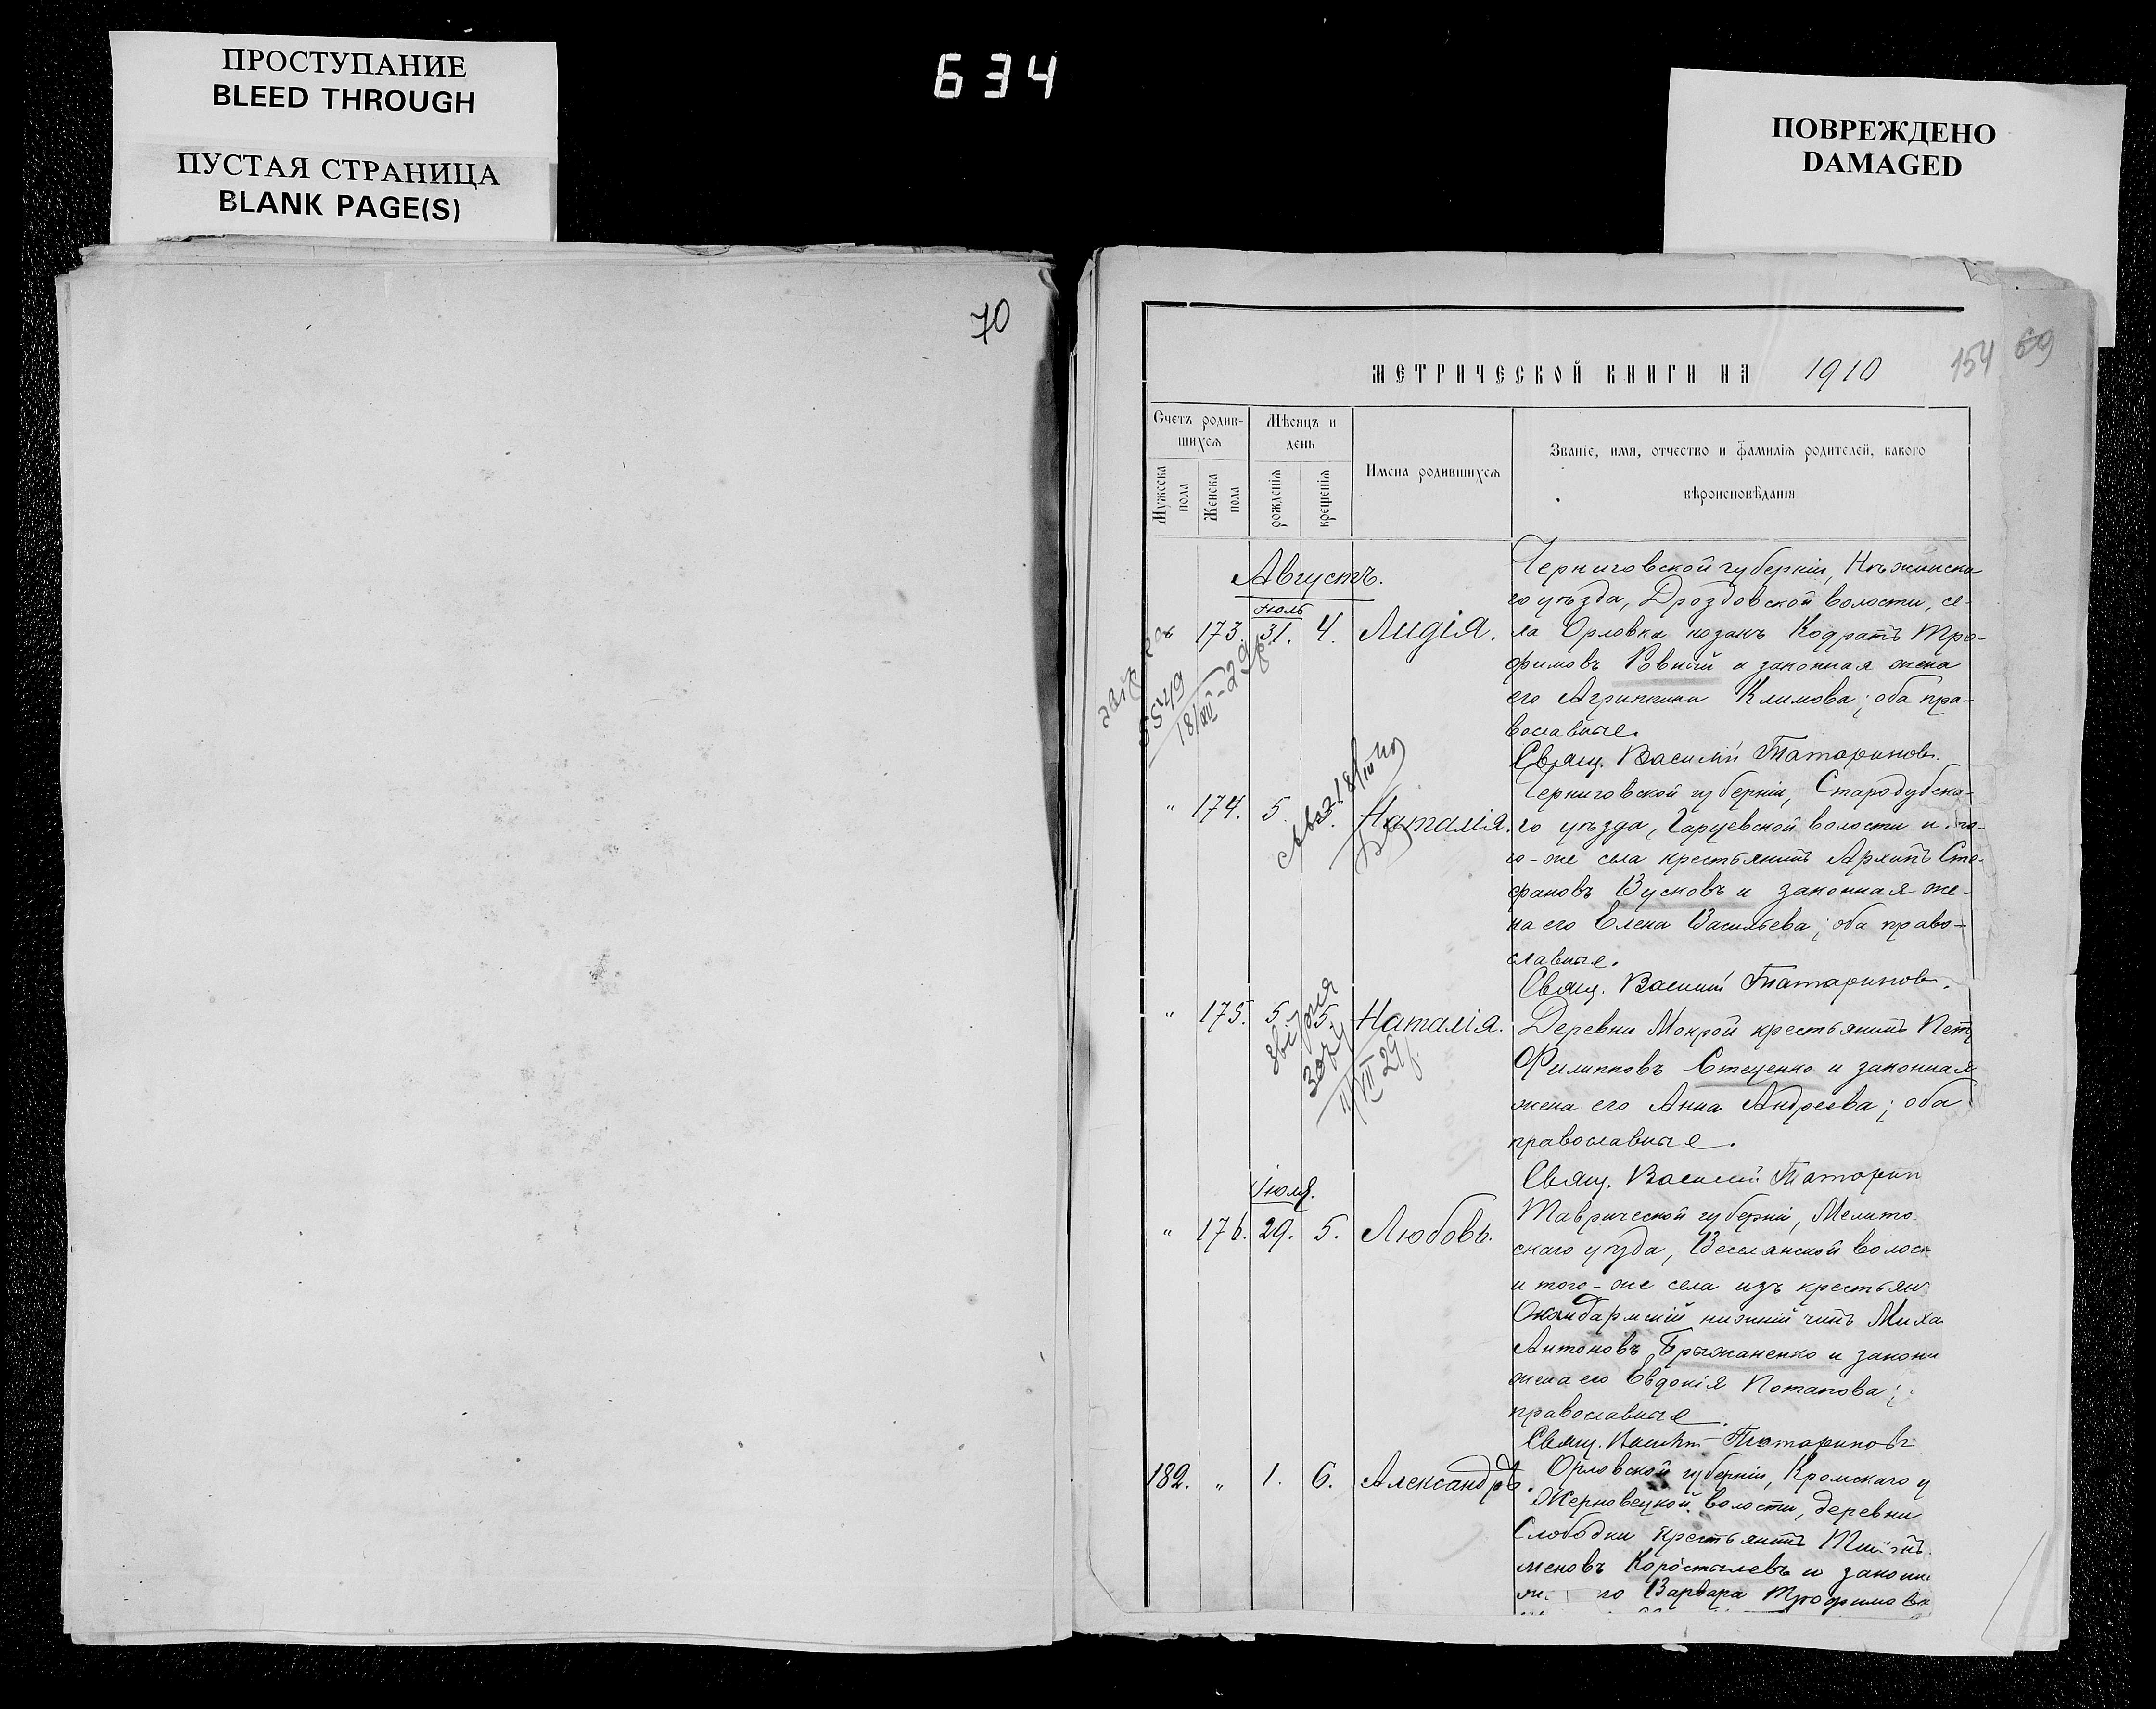 ПРОСТУПАНИЕ
BLEED THROUGH
ПУСТАЯ СТРАНИЦА
BLANK PAGE(S)
634
ПОВРЕЖДЕНО
DAMAGED
70
154 69
МЕТРИЧЕСКОЙ КНИГИ НА 1910
Счетъ родив-
шихся
Мужеска пола
Женска пола
Мѣсяцъ и
день
рожденія
крещенія
Имена родившихся
Званіе, имя, отчество и фамилія родителей, какого
вѣроисповѣданія
Августъ.
Іюль
173. 31. 4. Лидія.
Черниговской губерніи, Нѣжинска
го уѣзда, Дроздовской волости, се-
ла Орловки козакъ Кодратъ Тро-
фимовъ Ровный и законная жена
его Агриппина Климова; оба пра-
вославные.
Свящ. Василій Татариновъ.
5549
18/XII-29 р
" 174. 5. Наталія.
Черниговской губерніи, Стародубска-
го уѣзда, волости и то-
го-же села крестьянинъ Архипъ Сте-
фановъ Вусковъ и законная же-
на его Елена Васильева; оба право-
славные.
Свящ. Василій Татариновъ.
" 175. 5. 5. Наталія.
Деревни Мокрой крестьянинъ Петръ
Филипповъ Стеценко и законная
жена его Анна Андреева; оба
православные.
Свящ. Василій Татарин
Іюля.
" 176. 29. 5. Любовь.
Таврической губерніи, Мелито
скаго уѣзда, Веселянской волос
и того-же села изъ крестьян
нижній чинъ Миха
Антоновъ Брыжаненко и законн
жена его Евдокія Потапова;
православные.
Свящ. Василій Татариновъ
182. " 1. 6. Александръ.
Орловской губерніи, Кромскаго у
Жерновецкой волости, деревни
Слободки крестьянинъ
меновъ Коростылевъ и законн
го Варвара Трофимова